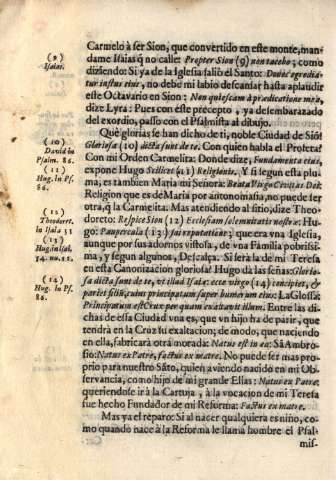 Carmelo à ser Sion, que convertido en este monte, man-
dame Isaias q̃ no calle: Propter Sion (9) non tacebo; como
diziendo: Si ya de la Iglesia saliò el Santo: Donec egredia-
tur iustus eius, no debe mi labio descansar hasta aplaudir
este Octavario en Sion: Non quiescam à prædicatione mea,
dize Lyra: Pues con este precepto, ya desembarazado
del exordio, passo con el Psalmista al dibujo.
Què glorias se han dicho de ti, noble Ciudad de Siõ?
Gloriosa (10) dicta sunt de te. Con quien habla el Profeta?
Con mi Orden Carmelita: Donde dize; Fundamenta eius,
expone Hugo Scilicet (11) Religionis. Y si seguì esta plu-
ma, es tambien Maria mi Señora: Beata Virgo Civitas Dei:
Religion que es de Maria por antonomasia, no puede ser
otra, q̃ la Carmelita: Mas atendiendo al sitio, dize Theo-
doreto: Respice Sion (12) Ecclesiam solemnitatis nostræ: Hu-
go: Paupercula (13) sui reputatione; que era vna Iglesia,
aunque por sus adornos vistosa, de vna Familia pobrisi-
ma, y segun algunos, Descalça. Si serà la de mi Teresa
en esta Canonizacion gloriosa? Hugo dà las señas: Glorio-
sa dicta sunt de te, vt illud Isaiæ: ecce virgo (14) concipiet, &
pariet filiũ, cuius principatum super humerum eius: La Glossa:
Principatum est Crux per quam exaltatus illum. Entre las di-
chas de esta Ciudad vna es, que vn hijo ha de parir, que
tendrà en la Cruz su exaltacion; de modo, que naciendo
en ella, fabricarà otra morada: Natus est in ea: Sã Ambro-
sio: Natus ex Patre, factus ex matre. No puede ser mas pro-
prio para nuestro Sãto, quien aviendo nacido en mi Ob-
servancia, como hijo de mi grande Elias: Natus ex Patre:
queriendose ir à la Cartuja, à la vocacion de mi Teresa
fue hecho Fundador de mi Reforma: Factus ex matre.
Mas ya el reparo: Si al nacer qualquiera es niño, co-
mo quando nace à la Reforma le llama hombre el Psal-
mis-
(9)
Isaiæ.
(10)
David in
Psalm. 86.
(11)
Hug. in Ps.
86.
(12)
Theodoret.
in Isaiã 33
(13)
Hug. in Isai.
54. nu. 11.
(14)
Hug. in Ps.
86.